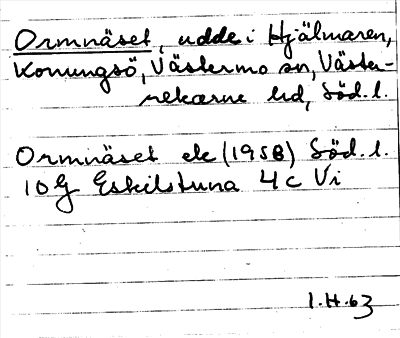 Ormnäset, udde i Hjälmaren,
Konungsö, Västermo sn, Väster-
rekarne hd, Söd. l.
Ormnäset ek (1958) Söd. l.
10G Eskilstuna 4c Vi
1.H.63